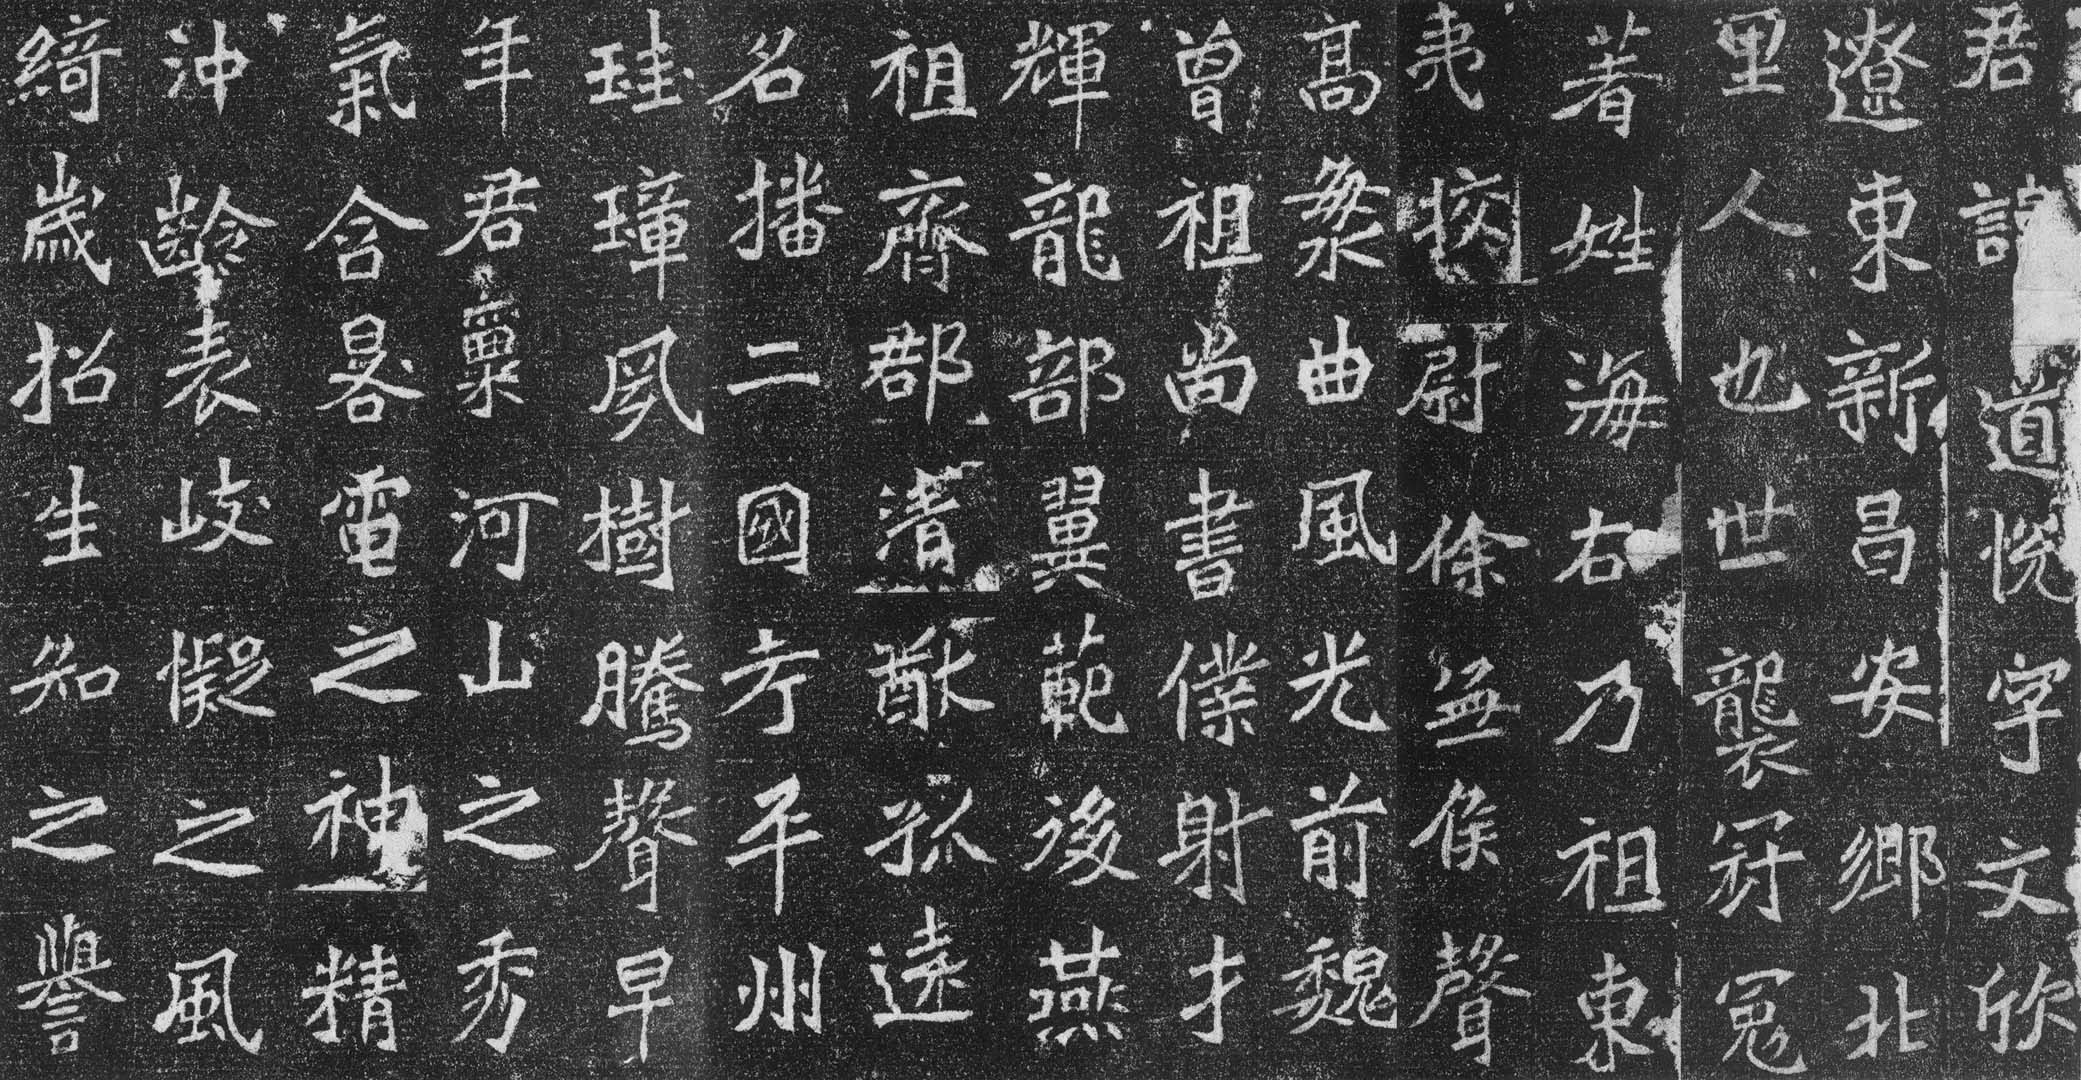 君諱道悅字文欣
遼東新昌安鄉北
里人也世襲冠冕
著姓海右乃祖東
夷挍尉徐無侯聲
高衆曲風光前魏
曾祖尚書僕射才
輝龍部翼範後燕
祖齊郡清猷孤遠
名播二國考平州
珪璋夙樹騰聲早
年君稟河山之秀
氣含晷電之神精
沖齡表岐懝之風
綺歲招生知之譽